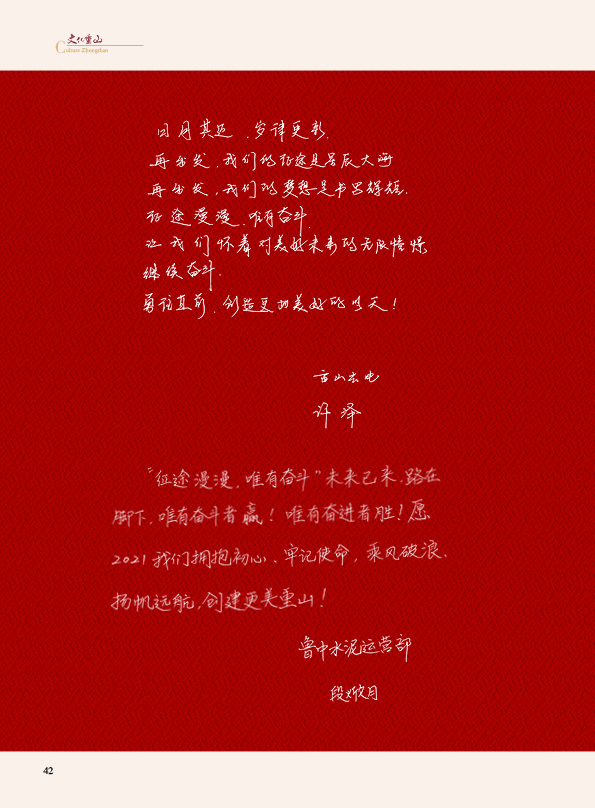 文化重山
Culture Zhongshan
日月其迈，岁律更新，
再出发，我们的征途是星辰大海
再出发，我们的梦想是书写辉煌，
征途漫漫，唯有奋斗，
让我们怀着对美好未来的无限憧憬
继续奋斗，
勇往直前，创造更加美好的明天！
山出电
许泽
“征途漫漫，唯有奋斗”未来已来，路在
脚下，唯有奋斗者赢！唯有奋进者胜！愿
2021我们拥抱初心、牢记使命，乘风破浪、
扬帆远航，创建更美重山！
鲁中水泥运营部
段欣月
42